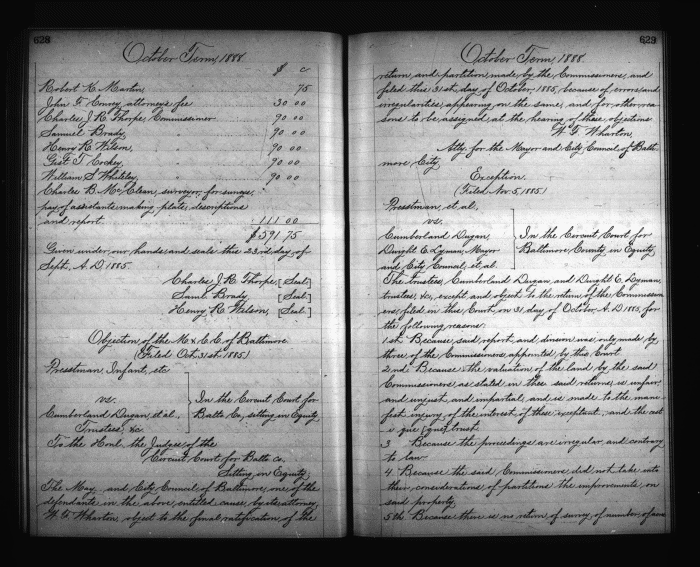 628
October Term, 1888.
$ c
Robert H. Martin, 75
John F. Conrey, attorneys fee 30 00
Charles J. R. Thorpe, Commissioner 90 00
Samuel Brady, " 90 00
Henry R. Wilson, " 90 00
Geo. T. Cockey, " 90 00
William S. Whiteley, " 90 00
Charles B. McClean, surveyor, for survey,
pay of assistants, making plats, descriptions
and report. 111 00
$591 75
Given under our hands and seals this 23rd day of
Sept. A.D. 1885.
Charles J. R. Thorpe, [Seal]
Saml. Brady [Seal]
Henry R. Wilson, [Seal]
Objection of the M. & C.C. of Baltimore
(Filed Oct. 31st 1885)
Presstman, Infant, etc
vs.
In the Circuit Court for
Cumberland Dugan, et al.
Balto Co., sitting in Equity
Trustees, &c.
To the Honl. the Judges of the
Circuit Court for Balto Co.
Sitting in Equity,
The May. and City Council of Baltimore, one of the
defendants in the above entitled cause, by its attorney,
W. F. Wharton, object to the final ratification of the
629
October Term, 1888.
return and partition, made by the Commissioners, and
filed this 31st. day of October, 1885, because of errors and
irregularities, appearing on the same, and for other rea
sons to be assigned at the hearing of these objections.
W. F. Wharton,
Atty. for the Mayor and City Council of Balti
more City.
Exception.
(Filed Nov. 5, 1885)
Presstman, et al,
vs.
Cumberland Dugan,
In the Circuit Court for
Dwight C. Lyman, Mayor
Baltimore County, in Equity,
and City Council, et al.
The Trustees, Cumberland Dugan, and Dwight C. Lyman,
trustees, &c, except and object to the return of the Commission
ers, filed in this Court, on 31, day of October A.D 1885, for
the following reasons:
1st. Because, said report, and division was only made by
three of the Commissioners, appointed by this Court
2nd Because the valuation of the land by the said
Commissioners, as stated in their said return, is unfair
and unjust, and impartial, and is made to the mani
fest injury, of the interest, of these exceptant, and the cest
is que [que] trust.
3. Because the proceedings are irregular and contrary
to law
4. Because the said Commissioners did not take into
their considerations of partitions the improvements on
said property
5th Because there is no return of survey, of number of acres